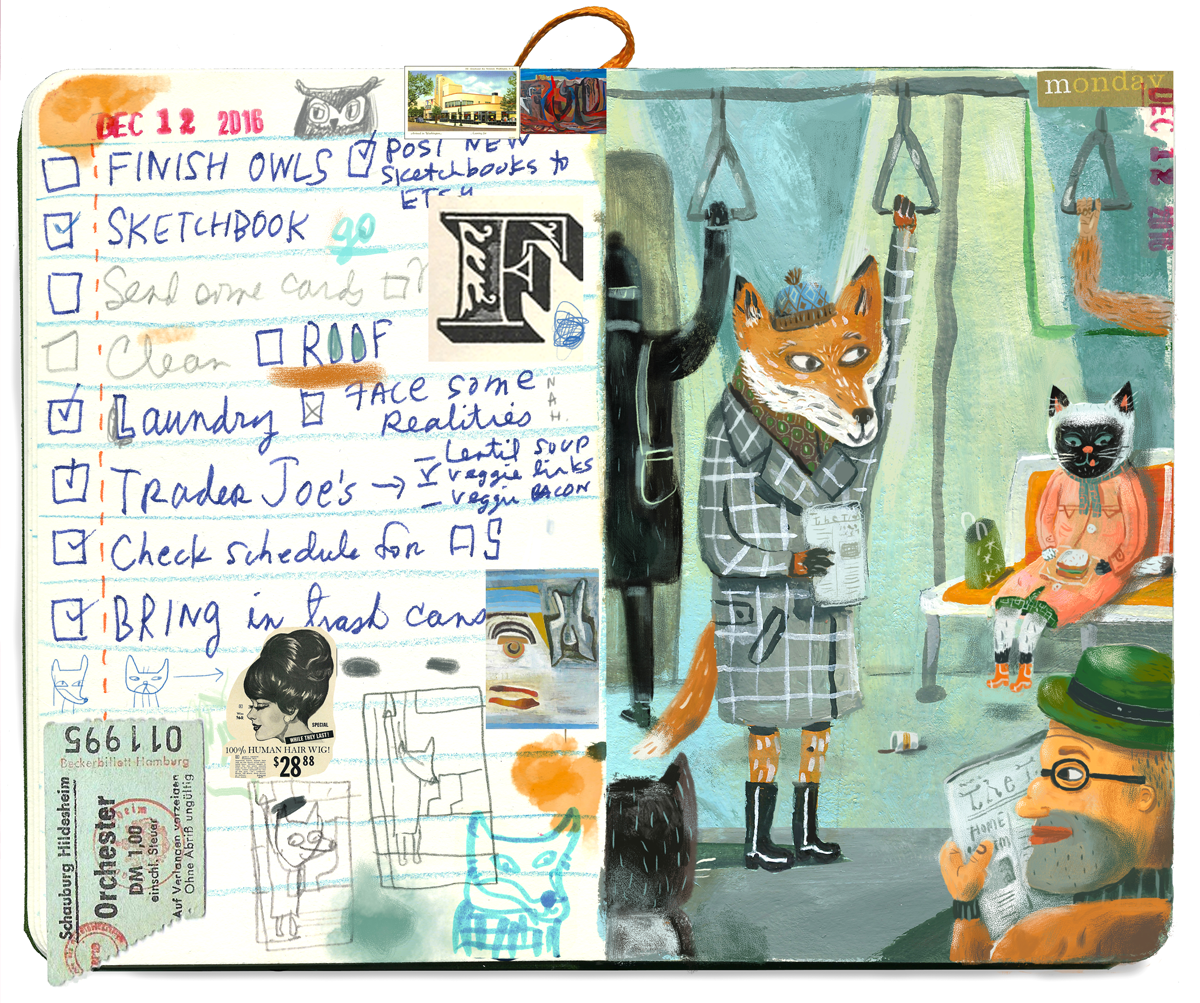 DEC 12 2016
monday
DEC 12
FINISH OWLS
POST NEW
Sketchbooks to
SKETCHBOOK
go
F
Send some cards
Clean
ROOF
NAH
Laundry
FACE some
Realities
Trader Joe's →
– Lentil SOUP
veggie links
– veggie BACON
Check schedule for AS
BRING in trash cans
SPECIAL
WHILE THEY LAST!
100% HUMAN HAIR WIG!
$28 88
011995
Beckerbillett Hamburg
Schauburg Hildesheim
Orchester
DM 1,00
einschl. Steuer
Auf Verlangen vorzeigen
Ohne Abriß ungültig
The
HOME